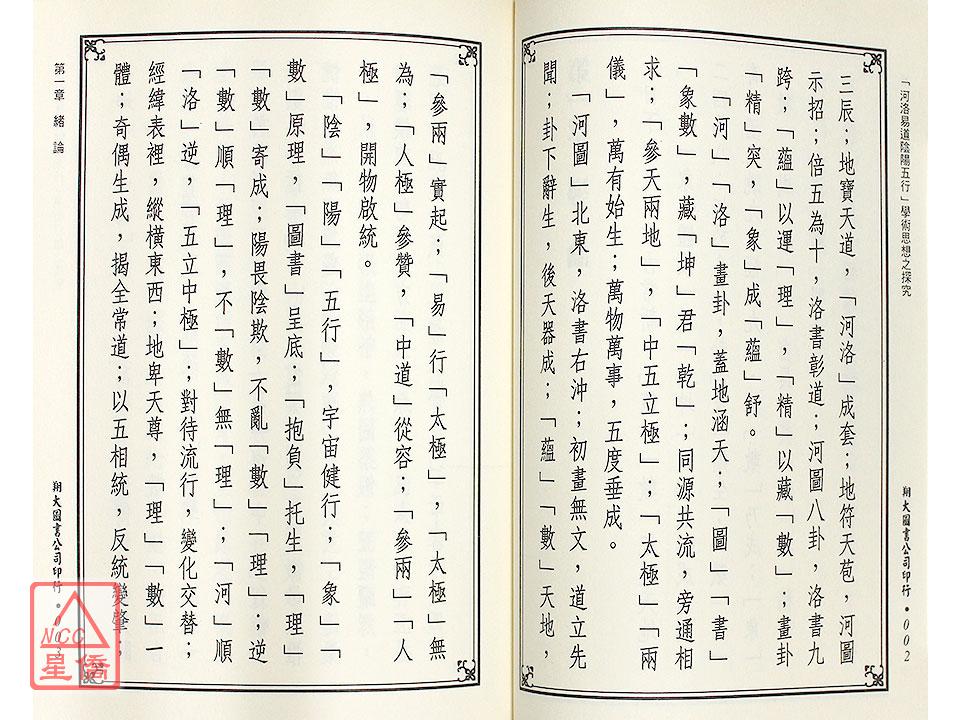 「河洛易道陰陽五行」學術思想之探究
三辰；地寶天道，「河洛」成套；地符天苞，河圖
示招；倍五為十，洛書彰道；河圖八卦，洛書九
跨；「蘊」以運「理」，「精」以藏「數」；畫卦
「精」突，「象」成「蘊」舒。
「河」「洛」畫卦，蓋地涵天；「圖」「書」
「象數」，藏「坤」君「乾」；同源共流，旁通相
求；「參天兩地」，「中五立極」；「太極」「兩
儀」，萬有始生；萬物萬事，五度垂成。
「河圖」北東，洛書右沖；初畫無文，道立先
聞；卦下辭生，後天器成；「蘊」「數」天地，
翔大圖書公司印行 • 002
「參兩」實起；「易」行「太極」，「太極」無
為；「人極」參贊，「中道」從容；「參兩」「人
極」，開物啟統。
「陰」「陽」「五行」，宇宙健行；「象」「
數」原理，「圖書」呈底；「抱負」托生，「理」
「數」寄成；陽畏陰欺，不亂「數」「理」；逆
「數」順「理」，不「數」無「理」；「河」順
「洛」逆，「五立中極」；對待流行，變化交替；
經緯表裡，縱橫東西；地卑天尊，「理」「數」一
體；奇偶生成，揭全常道；以五相統，反統變肇；
第一章 緒論
翔大圖書公司印行 • 003
NCC
星僑